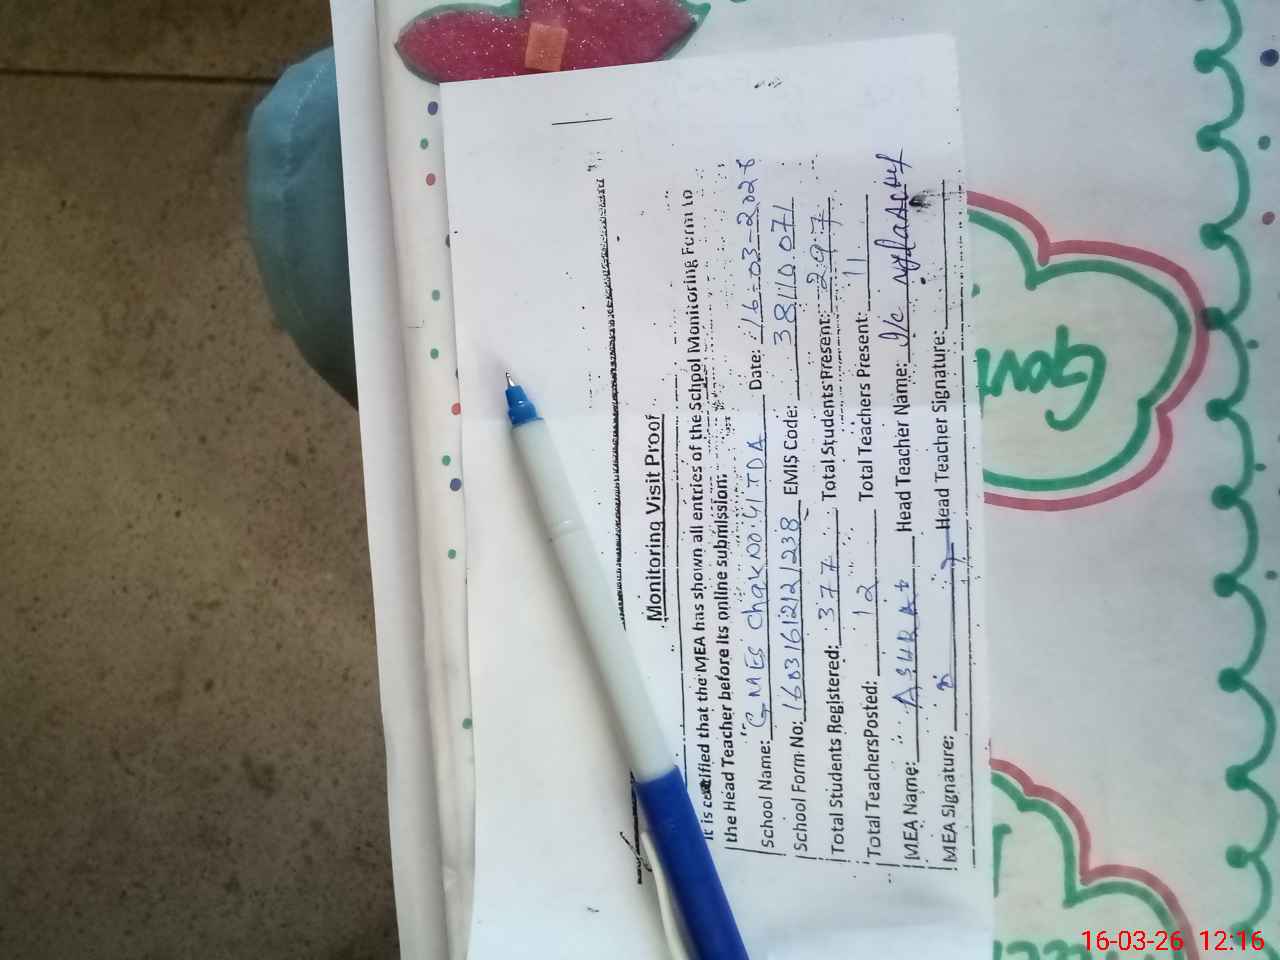 Monitoring Visit Proof
It is certified that the MEA has shown all entries of the School Monitoring Form to
the Head Teacher before its online submission:
School Name: GMES Chak No 41 TDA Date: 16-03-2026
School Form No: 160316121238 EMIS Code: 38110071
Total Students Registered: 377 Total Students Present: 297
Total TeachersPosted: 12 Total Teachers Present: 11
MEA Name: Head Teacher Name:
MEA Signature: Head Teacher Signature:
Govt
16-03-26 12:16